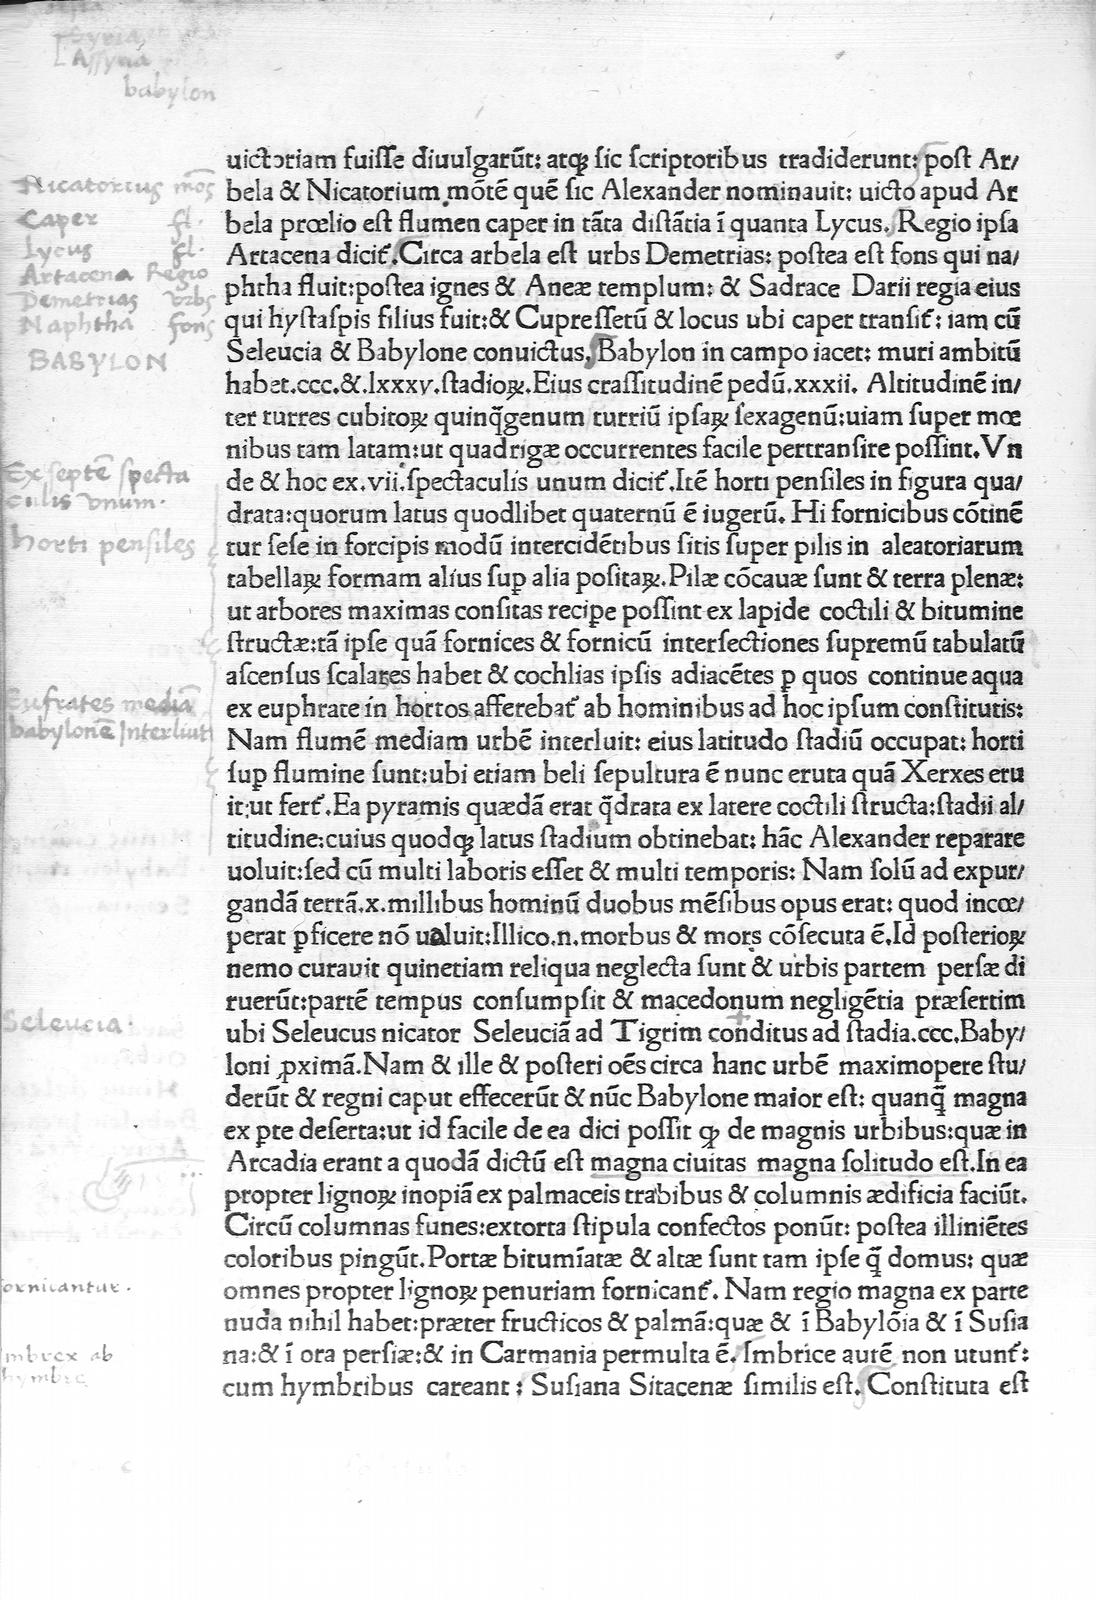 Syria
Assyria
babylon
uictoriam fuiſſe diuulgarūt: atqꝫ ſic ſcriptoribus tradiderunt: poſt Ar/
bela & Nicatorium mōtē quē ſic Alexander nominauit: uicto apud Ar
bela prœlio eſt flumen caper in tāta diſtātia ī quanta Lycus. Regio ipſa
Artacena dicit᷑. Circa arbela eſt urbs Demetrias: poſtea eſt fons qui na/
phtha fluit: poſtea ignes & Aneæ templum: & Sadrace Darii regia eius
qui hyſtaſpis filius fuit: & Cupreſſetū & locus ubi caper tranſit᷑: iam cū
Seleucia & Babylone conuictus. Babylon in campo iacet: muri ambitū
habet.ccc.&.lxxxv.ſtadioꝝ. Eius craſſitudinē pedū.xxxii. Altitudinē in/
ter turres cubitoꝝ quinq̄genum turriū ipſaꝝ ſexagenū: uiam ſuper mœ
nibus tam latam: ut quadrigæ occurrentes facile pertranſire poſſint. Vn
de & hoc ex.vii.ſpectaculis unum dicit᷑. Itē horti penſiles in figura qua/
drata: quorum latus quodlibet quaternū ē iugerū. Hi fornicibus cōtinē
tur ſeſe in forcipis modū intercidētibus ſitis ſuper pilis in aleatoriarum
tabellaꝝ formam alius ſuꝑ alia poſitaꝝ. Pilæ cōcauæ ſunt & terra plenæ:
ut arbores maximas conſitas reciꝑe poſſint ex lapide coctili & bitumine
ſtructæ: tā ipſe quā fornices & fornicū interſectiones ſupremū tabulatū
aſcenſus ſcalares habet & cochlias ipſis adiacētes ꝑ quos continue aqua
ex euphrate in hortos afferebat᷑ ab hominibus ad hoc ipſum conſtitutis:
Nam flumē mediam urbē interluit: eius latitudo ſtadiū occupat: horti
ſuꝑ flumine ſunt: ubi etiam beli ſepultura ē nunc eruta quā Xerxes eru
it: ut fert᷑. Ea pyramis quædā erat q̄drata ex latere coctili ſtructa: ſtadii al/
titudine: cuius quodqꝫ latus ſtadium obtinebat: hāc Alexander reparare
uoluit: ſed cū multi laboris eſſet & multi temporis: Nam ſolū ad expur/
gandā terrā.x.millibus hominū duobus mēſibus opus erat: quod incœ/
perat ꝑficere nō ualuit: Illico.n.morbus & mors cōſecuta ē. Id poſterioꝝ
nemo curauit quinetiam reliqua neglecta ſunt & urbis partem perſæ di
ruerūt: partē tempus conſumpſit & macedonum negligētia præſertim
ubi Seleucus nicator Seleuciā ad Tigrim conditus ad ſtadia.ccc.Baby/
loni ꝓximā. Nam & ille & poſteri oēs circa hanc urbē maximopere ſtu/
derūt & regni caput effecerūt & nūc Babylone maior eſt: quanq̄ magna
ex ꝑte deſerta: ut id facile de ea dici poſſit qꝫ de magnis urbibus: quæ in
Arcadia erant a quodā dictū eſt magna ciuitas magna ſolitudo eſt. In ea
propter lignoꝝ inopiā ex palmaceis trabibus & columnis ædificia faciūt.
Circū columnas funes: extorta ſtipula confectos ponūt: poſtea illiniētes
coloribus pingūt. Portæ bitumīatæ & altæ ſunt tam ipſe q̄ domus: quæ
omnes propter lignoꝝ penuriam fornicant᷑. Nam regio magna ex parte
nuda nihil habet: præter fructicos & palmā: quæ & ī Babylōia & ī Suſia
na: & ī ora perſiæ: & in Carmania permulta ē. Imbrice autē non utunt᷑:
cum hymbribus careant: Suſiana Sitacenæ ſimilis eſt. Conſtituta eſt
Nicatorius mōs
Caper fl.
Lycus fl.
Artacena Regio
Demetrias vrbs
Naphtha fons
BABYLON
Ex septē specta
culis vnum.
horti pensiles
Eufrates mediā
babylonē Interluit
Seleucia
fornicantur.
Imbrex ab
hymbre